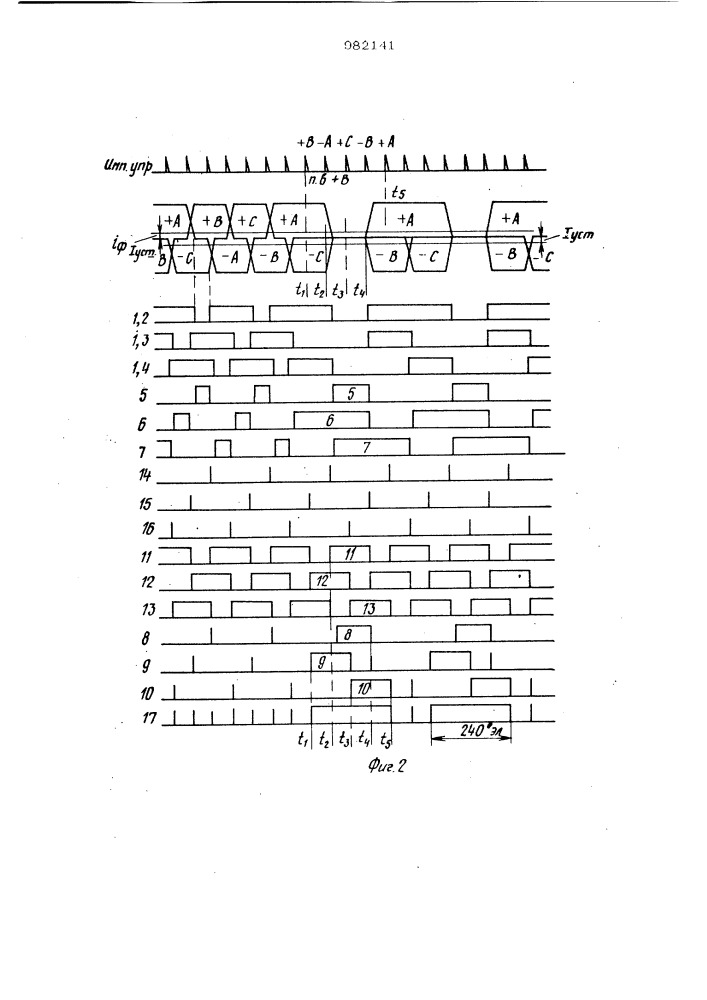 982141
+B −A +C −B +A
Имп. упр
п.6 +B
t5
+A +B +C +A +A +A
iф Iуст Iуст
B −C −A −B −C −B −C −B −C
t1 t2 t3 t4
1,2
1,3
1,4
5 5
6 6
7 7
14
15
16
11 11
12 12
13 13
8 8
9 9
10 10
17
t1 t2 t3 t4 t5 240° эл
Фиг. 2